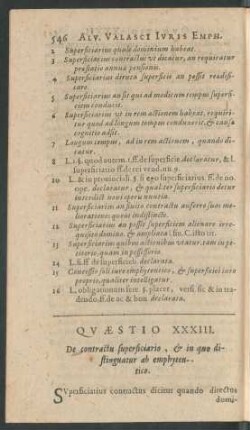 546 ALV. VALASCI IVRIS EMPH.
2 Superficiarius quale dominium habeat.
3 Superficiarius contractus vt dicatur, an requiratur
pensatio annua pensionis.
4 Superficiarius diruta superficie an possit reædificare.
5 Superficiarius an sit qui ad modicum tempus superficiem
conducit.
6 Superficiarius vt in rem actionem habeat, requiritur
quod ad longum tempus conduxerit, & causa
cognitio adsit.
7 Longum tempus, ad in rem actionem, quando dicatur.
8 L. 1. §. quod autem. ff. de superficie. declaratur, & l.
superficiario ff. de rei vend. nu. 9.
10 L. & in prouinciali. §. si ego superficiarius ff. de no.
ope. declaratur, & qualiter superficiario detur
interdict. noui operis nuntia.
11 Superficiarius an finito contractu auferre suas melioriationes
queat indistincte.
12 Superficiarius an possit superficiem alienare irrequisito
domino. & ampliata l. fin. C. isto tit.
13 Superficiarius quibus actionibus vtatur, tam in petitorio,
quam in possessorio.
14 L. 2. ff. de superficieb. declarata.
15 Concessio soli iure emphyteutico, & superficiei iure
proprio, qualiter intelligatur.
16 L. obligationum fere. §. placet, versi. sic & in tradendo.
ff. de ac & bon. declarata.
QVÆSTIO XXXIII.
De contractu superficiario, & in quo distinguatur
ab emphyteutico.
SVperficiarius contractus dicitur quando directus
domi-